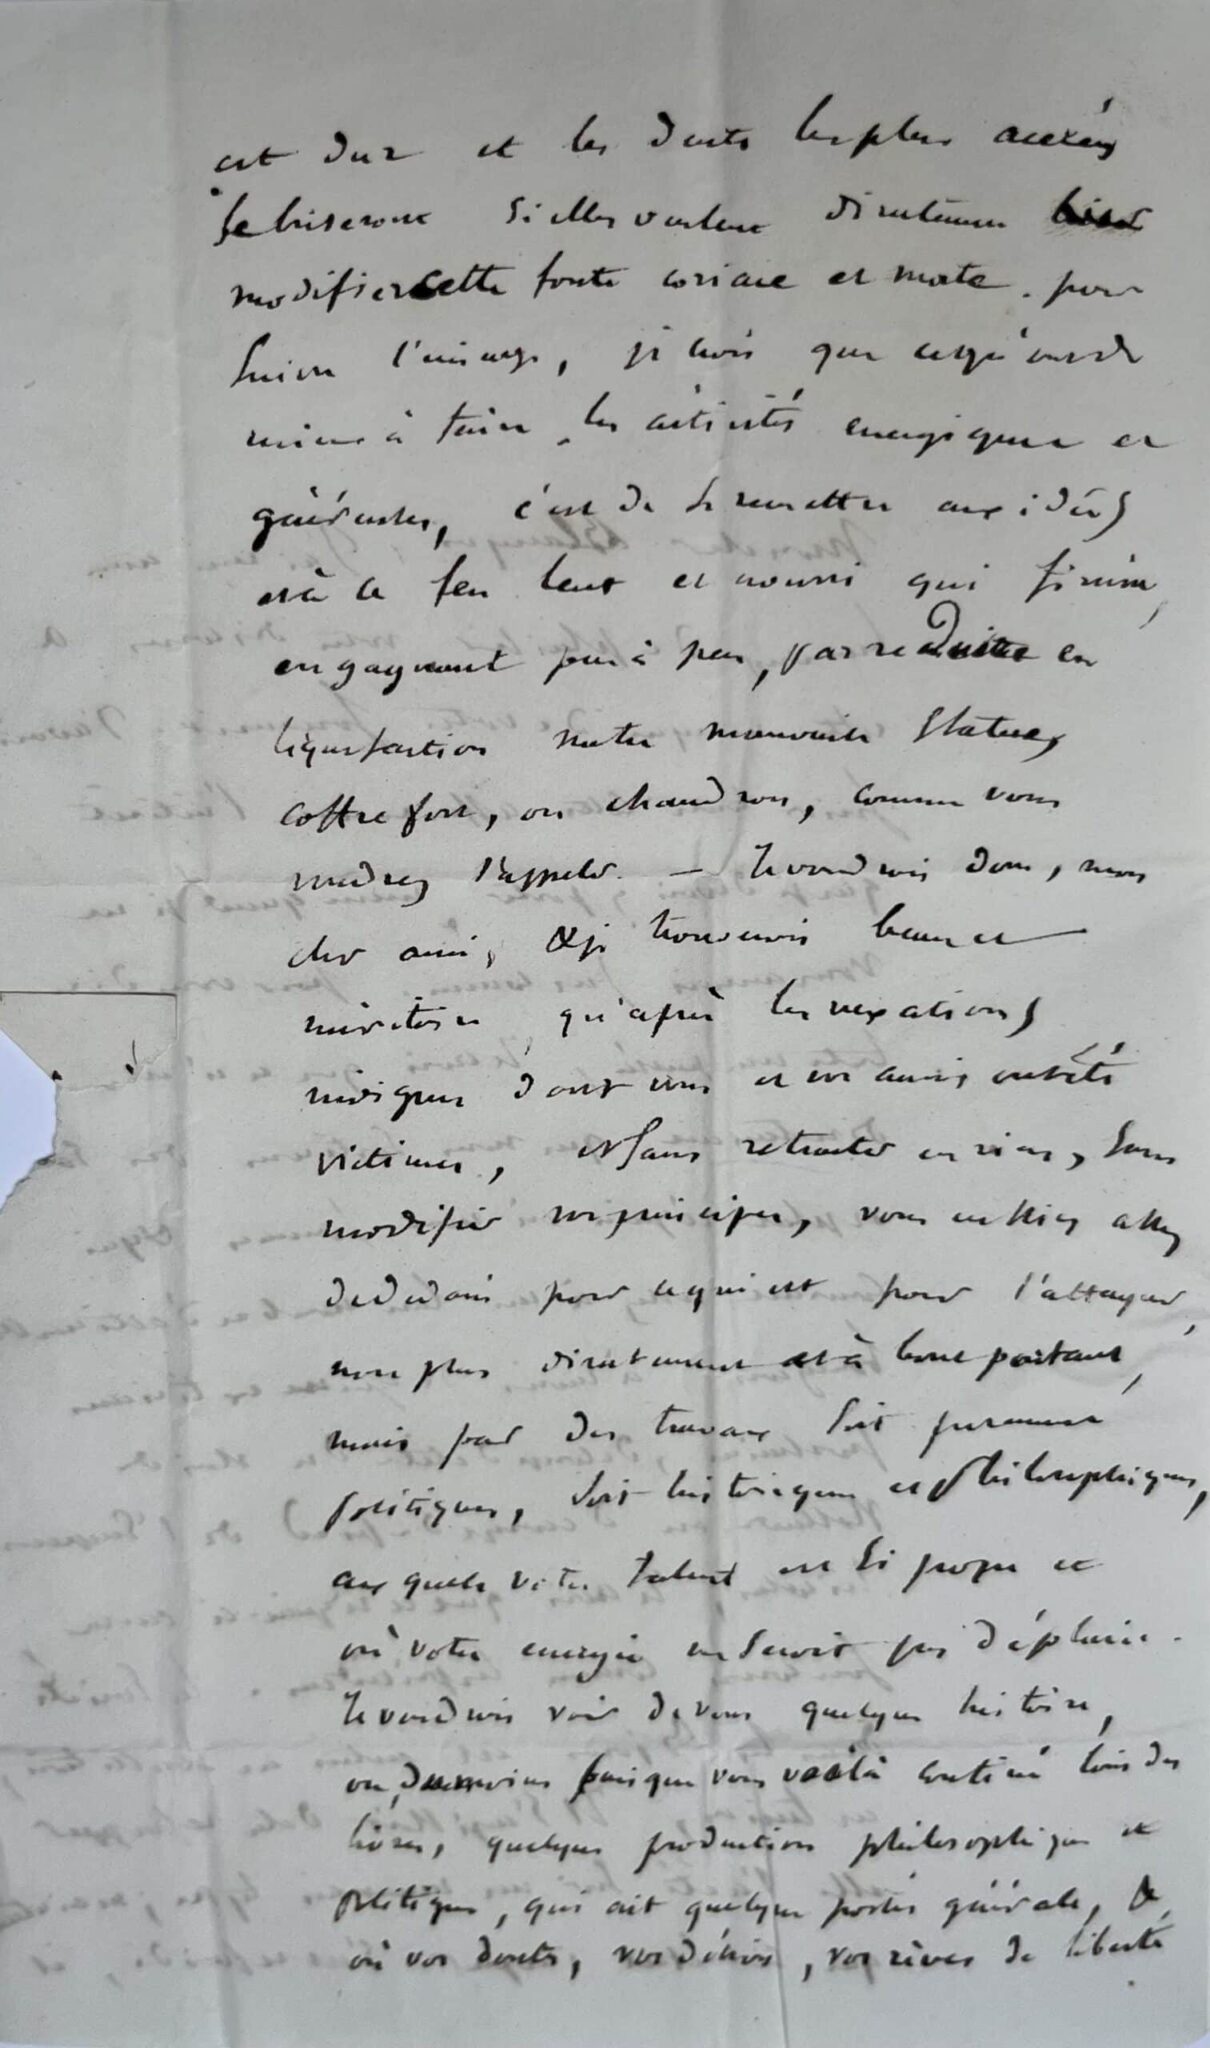 est dur et les dents les plus acérées
se briseront si elles veulent directement
modifier cette fonte coriace et morte. pour
suivre l'image, je crois que ce qu'ont de
mieux à faire les activités énergiques et
généreuses, c'est de se remettre aux idées
et à ce feu lent et nourri qui finira,
en gagnant peu à peu, par réduire en
liquéfaction notre mauvaise statue,
coffre fort, ou chaudron, comme vous
voudrez l'appeler. — Je voudrais donc, mon
cher ami, & je trouverais beau et
méritoire qu'après les vexations
iniques dont vous et vos amis ont été
victimes, et sans rétracter en rien, sans
modifier vos principes, vous eussiez assez
de dédain pour ce qui est pour l'attaquer,
non plus directement et à bout portant,
mais par des travaux soit purement
politiques, soit historiques et philosophiques,
auxquels votre talent est si propre et
où votre énergie ne serait pas déplacée.
Je voudrais voir de vous quelque histoire,
ou, du moins puisque vous voilà confiné loin des
livres, quelque production philosophique et
politique, qui ait quelque portée générale, &
où vos doutes, vos désirs, vos rêves de liberté